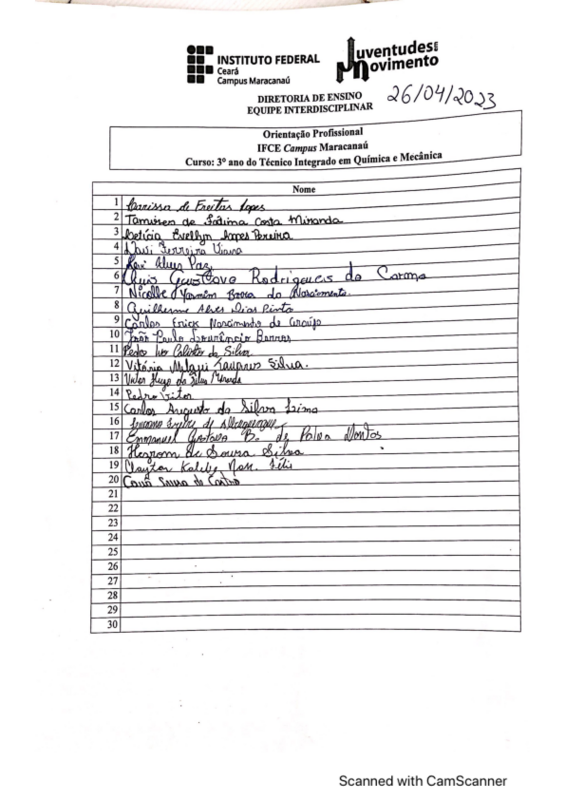 INSTITUTO FEDERAL
Ceará
Campus Maracanaú
Juventudes em
Movimento
DIRETORIA DE ENSINO
EQUIPE INTERDISCIPLINAR
26/04/2023
Orientação Profissional
IFCE Campus Maracanaú
Curso: 3º ano do Técnico Integrado em Química e Mecânica
Nome
1 Larissa de Freitas Lopes
2 Tamires de Fátima Costa Miranda
3 Letícia Evellyn Lopes Pereira
4 Davi Ferreira Viana
5 Alves Paz
6 Gustavo Rodrigues do Carmo
7 Nicolle Yasmim Barbosa do Nascimento
8 Guilherme Alves Dias Pinto
9 Carlos Erick Nascimento de Araújo
10 João Paulo Barros
11 Pedro da Silva
12 Vitória Tavares Silva.
13 Victor Hugo da Silva Miranda
14 Pedro Vitor
15 Carlos Augusto da Silva Lima
16 de Albuquerque
17 Emmanuel Gustavo B. de Paiva
18 de Souza Silva
19 Clayton Kaleby
20 Cauã Sousa de Castro
21
22
23
24
25
26
27
28
29
30
Scanned with CamScanner